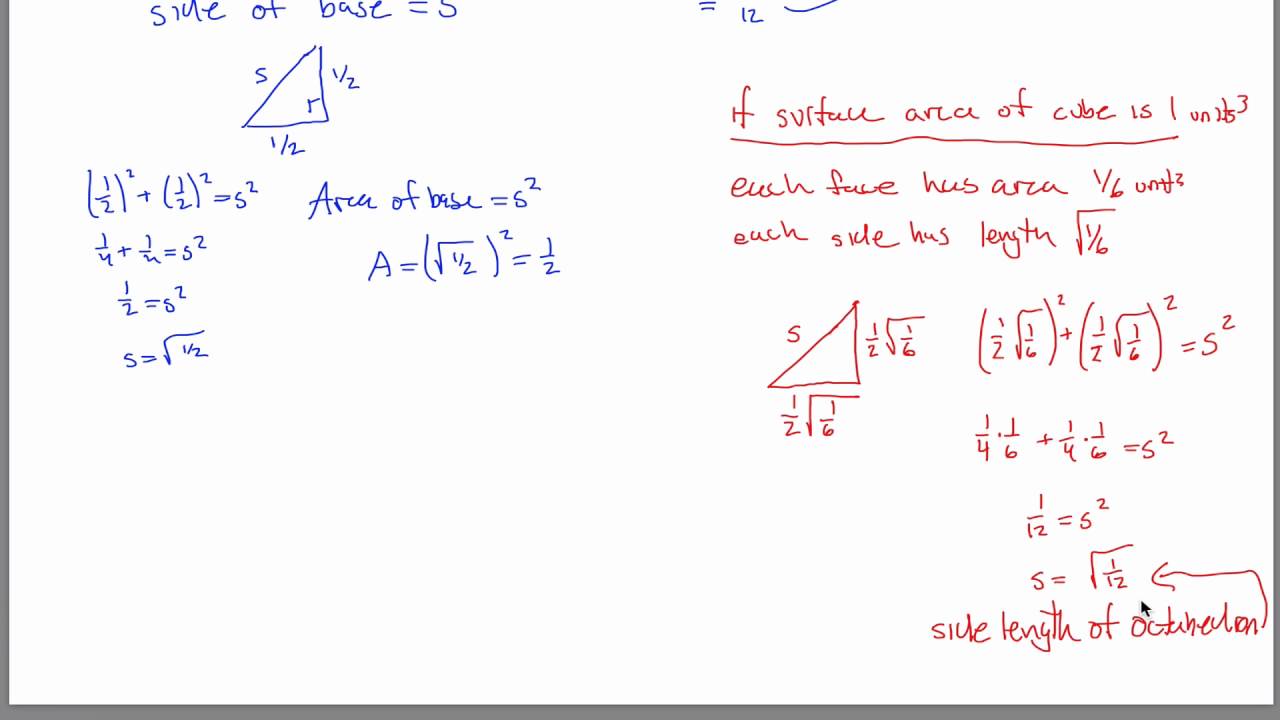 side of base = s
= 12
s
1/2
1/2
(1/2)² + (1/2)² = s²
1/4 + 1/4 = s²
1/2 = s²
s = √1/2
Area of base = s²
A = (√1/2)² = 1/2
If surface area of cube is 1 units³
each face has area 1/6 units
each side has length √1/6
s
1/2 √1/6
1/2 √1/6
(1/2 √1/6)² + (1/2 √1/6)² = s²
1/4 · 1/6 + 1/4 · 1/6 = s²
1/12 = s²
s = √1/12
side length of octahedron